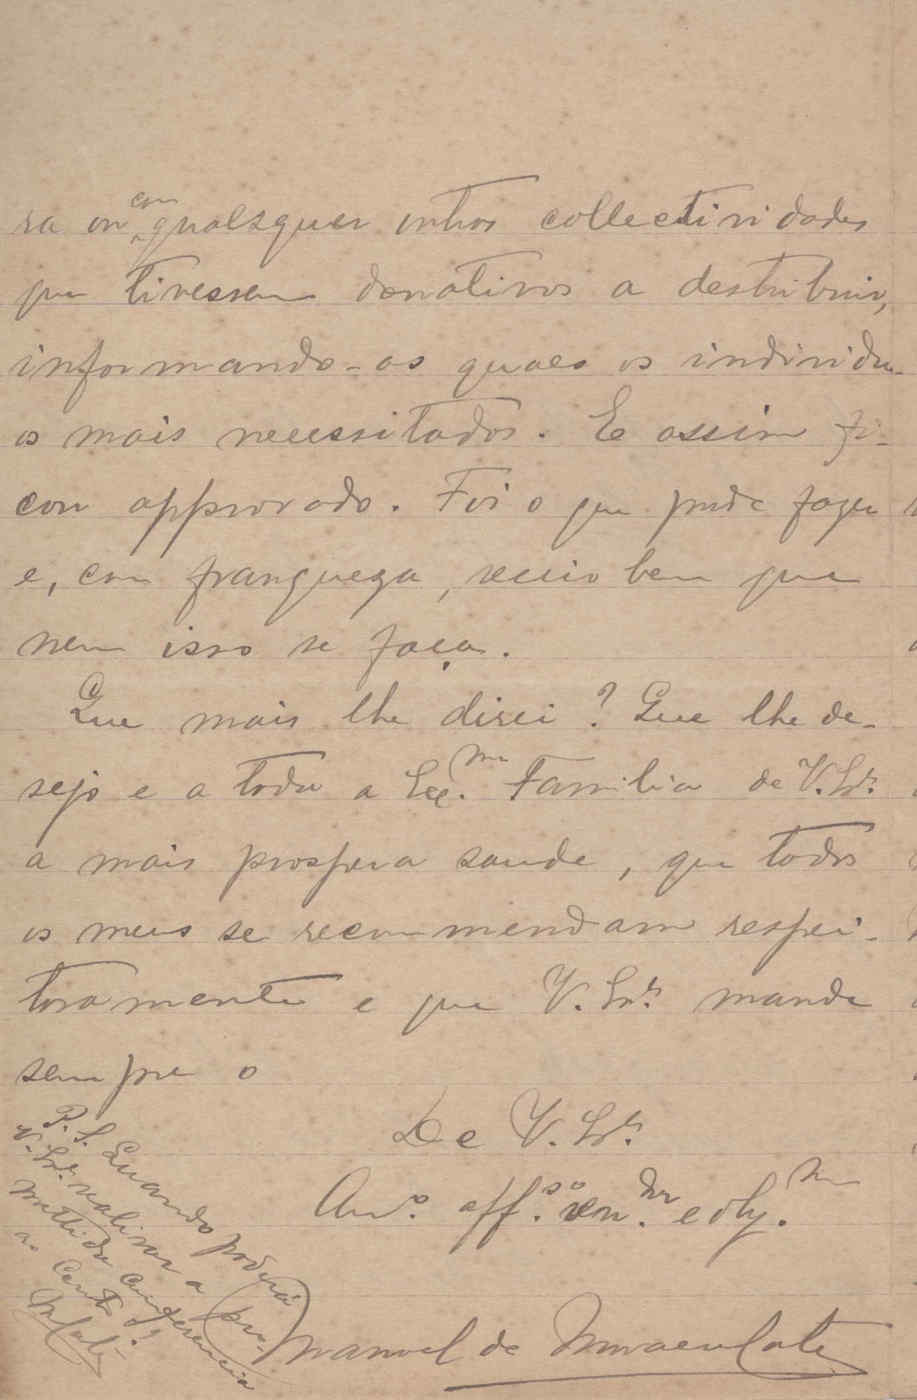 ra ou com qualsquer outras collectividades
que tivessem donativos a destribuir,
informando-as quaes os individu-
os mais necessitados. E assim fi-
cou approvado. Foi o que pude fazer
e, com franqueza, receio bem que
nem isso se faça.
Que mais lhe direi? Que lhe de-
sejo e a toda a Exc.ma Familia de V. Sr.ª
a mais prospera saude, que todos
os meus se recommendam respei-
tosamente e que V. Sr.ª mande
sempre o
De V. Sr.ª
Am.º aff.so ven.dor e obg.mo
Manoel da Immaculata
P. S. Quando poderá
V. Sr.ª realisar a pro-
mettida conferencia
ao Centro d'